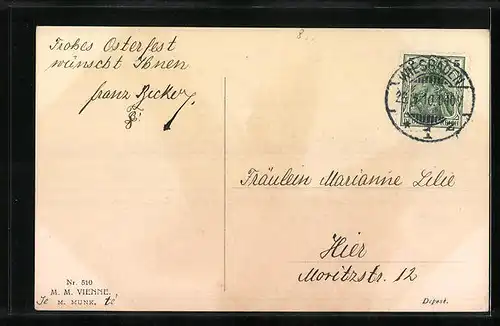 Frohes Osterfest
wünscht Ihnen
Franz Becker
WIESBADEN
1
Fräulein Marianne Lilie
Hier
Moritzstr. 12
Nr. 510
M. M. VIENNE.
M. MUNK.
Dépost.